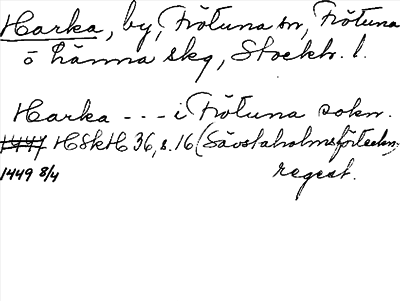 Harka, by, Frötuna sn, Frötuna
o Länna skg, Stockh. l.
Harka - - - i Frötuna sokn.
1441 HSkH 36, s. 16 (Sävstaholmsförteckn.,
1449 8/4 regest.